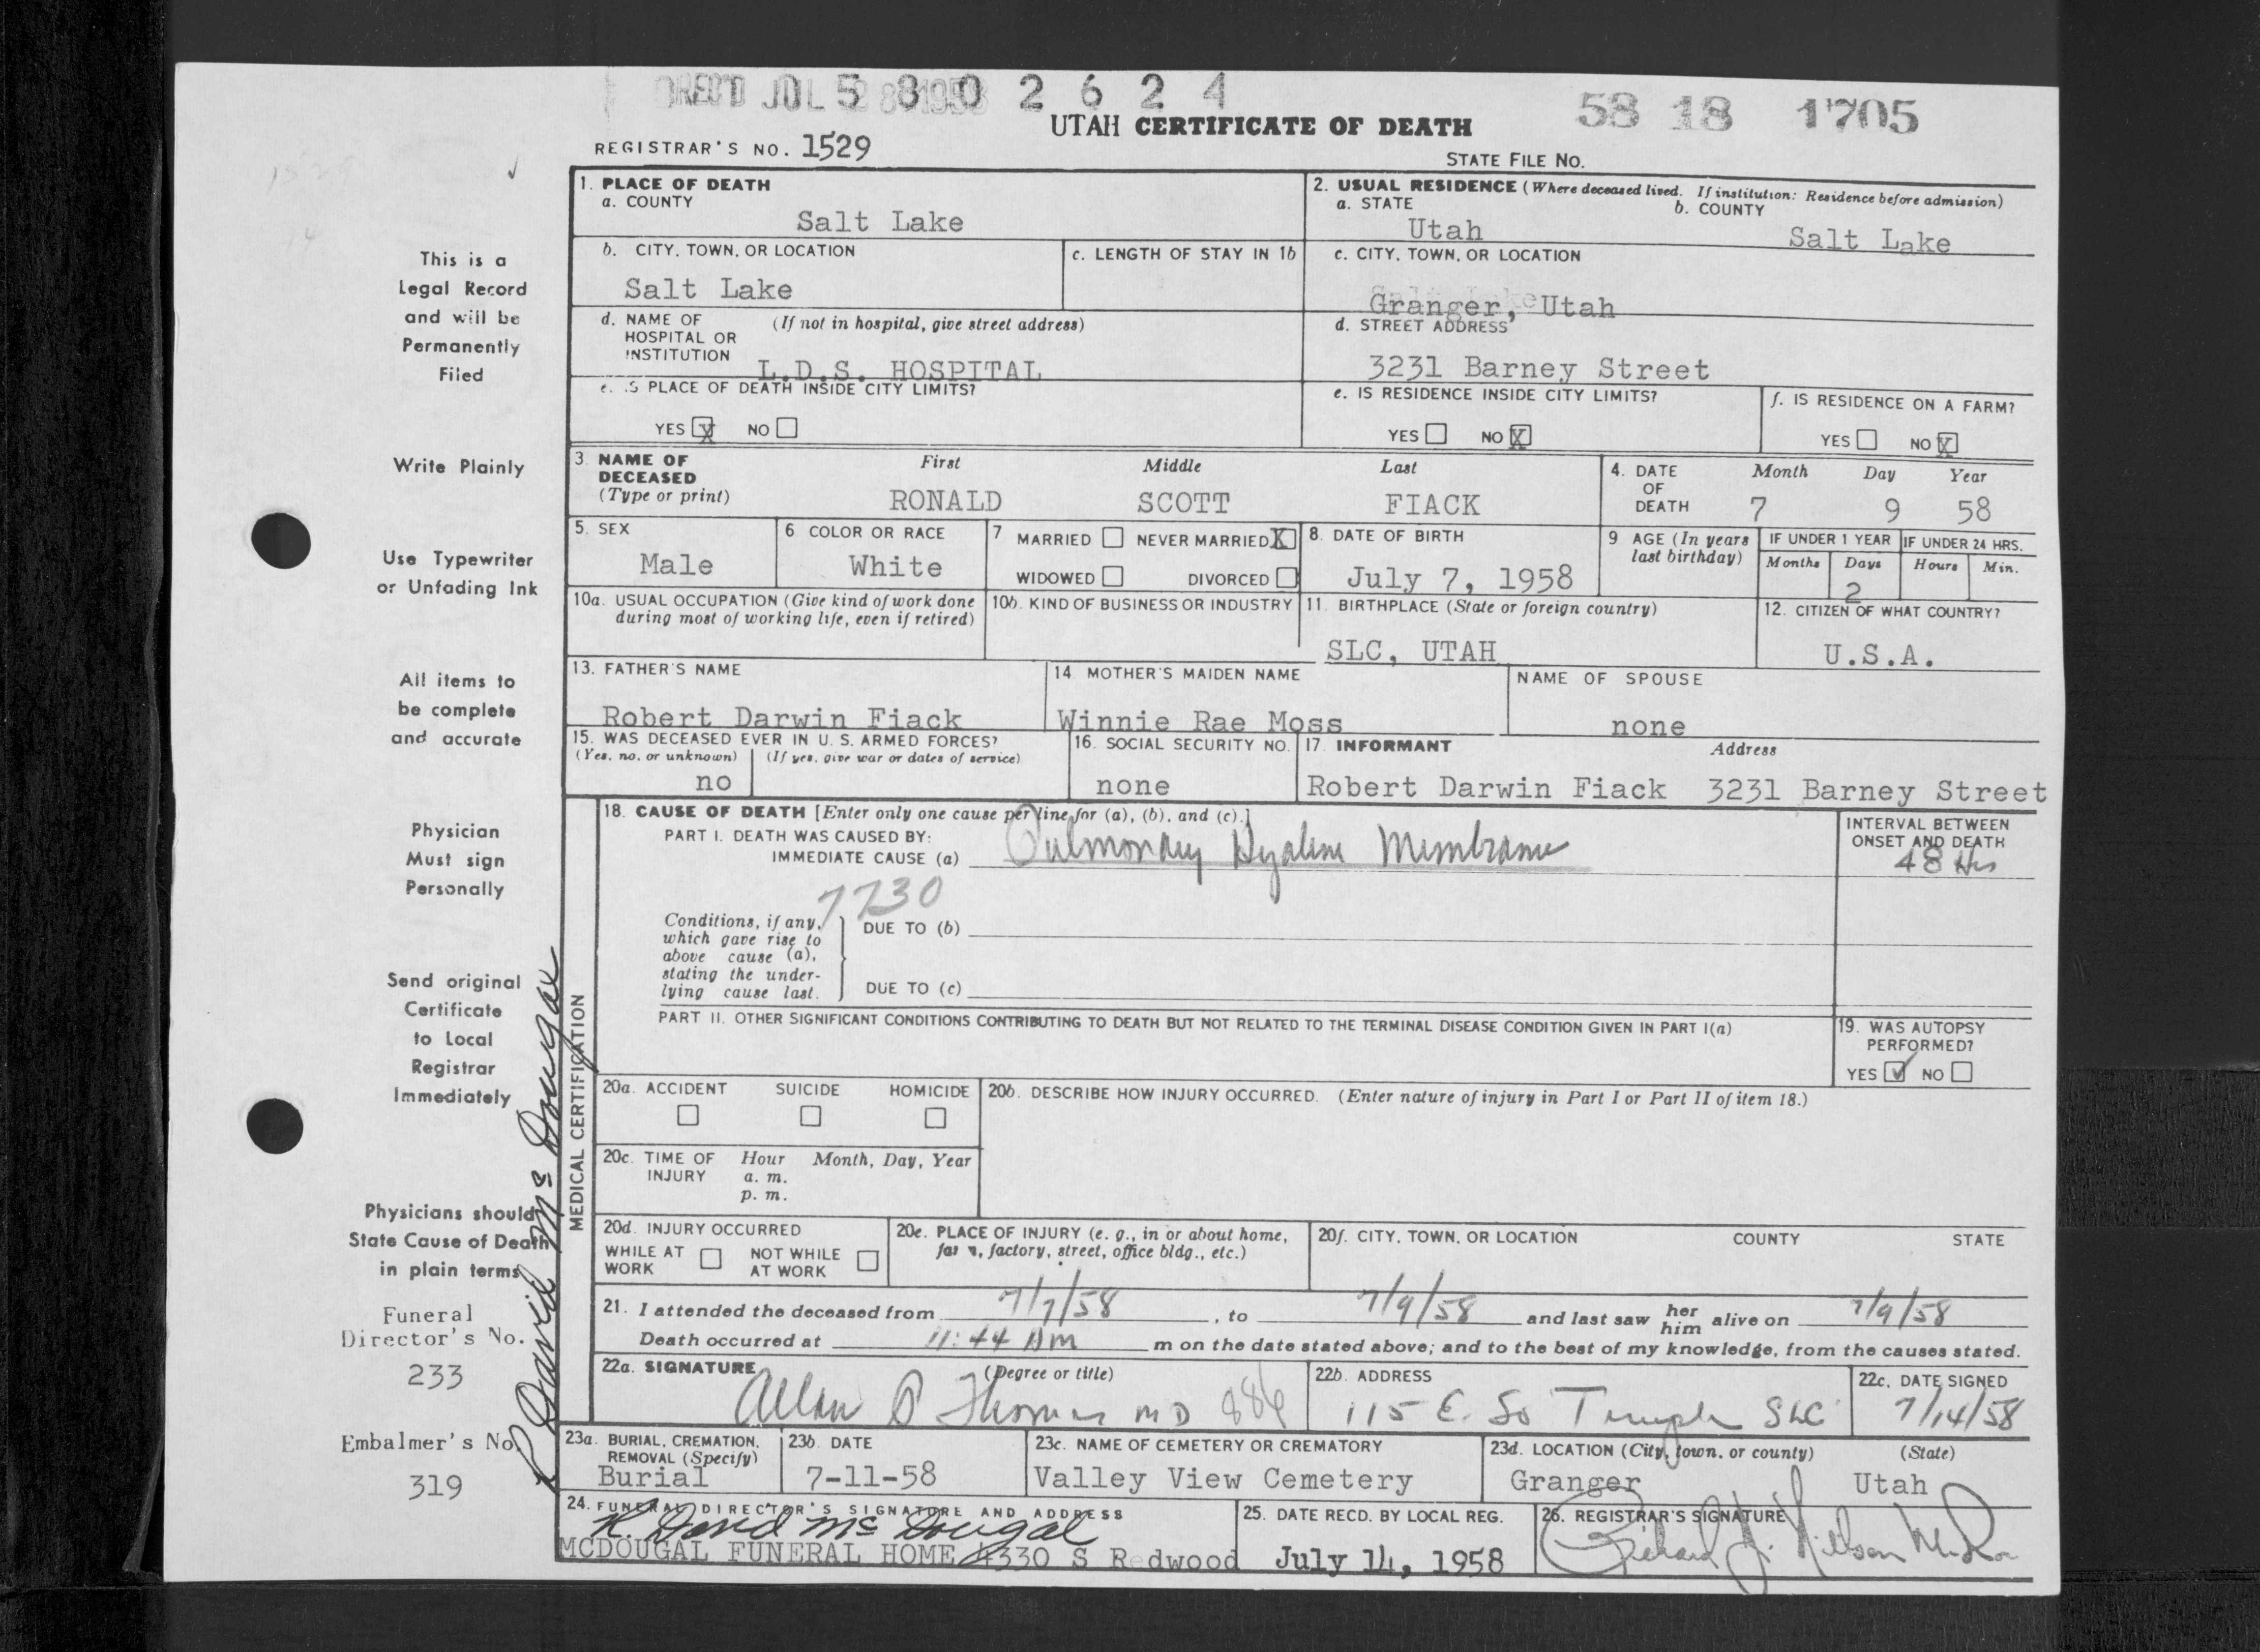 REC'D JUL 28 1958
5 8 0 2 6 2 4
58 18 1705
UTAH CERTIFICATE OF DEATH
REGISTRAR'S NO. 1529
STATE FILE NO.
1. PLACE OF DEATH
a. COUNTY
Salt Lake
2. USUAL RESIDENCE (Where deceased lived. If institution: Residence before admission)
a. STATE
b. COUNTY
Utah
Salt Lake
b. CITY, TOWN, OR LOCATION
c. LENGTH OF STAY IN 1b
c. CITY, TOWN, OR LOCATION
Salt Lake
Granger, Utah
d. NAME OF HOSPITAL OR INSTITUTION
(If not in hospital, give street address)
L.D.S. HOSPITAL
d. STREET ADDRESS
3231 Barney Street
e. IS PLACE OF DEATH INSIDE CITY LIMITS?
YES X NO
e. IS RESIDENCE INSIDE CITY LIMITS?
YES NO X
f. IS RESIDENCE ON A FARM?
YES NO X
3. NAME OF DECEASED
(Type or print)
First Middle Last
RONALD SCOTT FIACK
4. DATE OF DEATH
Month Day Year
7 9 58
5. SEX
Male
6 COLOR OR RACE
White
7 MARRIED NEVER MARRIED X
WIDOWED DIVORCED
8. DATE OF BIRTH
July 7, 1958
9 AGE (In years last birthday)
IF UNDER 1 YEAR
Months Days
2
IF UNDER 24 HRS.
Hours Min.
10a. USUAL OCCUPATION (Give kind of work done during most of working life, even if retired)
10b. KIND OF BUSINESS OR INDUSTRY
11. BIRTHPLACE (State or foreign country)
SLC, UTAH
12. CITIZEN OF WHAT COUNTRY?
U.S.A.
13. FATHER'S NAME
Robert Darwin Fiack
14. MOTHER'S MAIDEN NAME
Winnie Rae Moss
NAME OF SPOUSE
none
15. WAS DECEASED EVER IN U. S. ARMED FORCES?
(Yes, no, or unknown) (If yes, give war or dates of service)
no
16. SOCIAL SECURITY NO.
none
17. INFORMANT Address
Robert Darwin Fiack 3231 Barney Street
18. CAUSE OF DEATH [Enter only one cause per line for (a), (b), and (c).]
PART I. DEATH WAS CAUSED BY:
IMMEDIATE CAUSE (a) Pulmonary Hyaline Membrane
INTERVAL BETWEEN ONSET AND DEATH
48 Hrs
7730
Conditions, if any, which gave rise to above cause (a), stating the underlying cause last.
DUE TO (b)
DUE TO (c)
PART II. OTHER SIGNIFICANT CONDITIONS CONTRIBUTING TO DEATH BUT NOT RELATED TO THE TERMINAL DISEASE CONDITION GIVEN IN PART I(a)
19. WAS AUTOPSY PERFORMED?
YES ✓ NO
20a. ACCIDENT SUICIDE HOMICIDE
20b. DESCRIBE HOW INJURY OCCURRED. (Enter nature of injury in Part I or Part II of item 18.)
20c. TIME OF INJURY
Hour Month, Day, Year
a. m.
p. m.
20d. INJURY OCCURRED
WHILE AT WORK NOT WHILE AT WORK
20e. PLACE OF INJURY (e. g., in or about home, farm, factory, street, office bldg., etc.)
20f. CITY, TOWN, OR LOCATION COUNTY STATE
21. I attended the deceased from 7/7/58, to 7/9/58 and last saw her him alive on 7/9/58
Death occurred at 11:44 AM m on the date stated above; and to the best of my knowledge, from the causes stated.
22a. SIGNATURE (Degree or title)
Allan P Thomas MD 886
22b. ADDRESS
115 E. So Temple SLC
22c. DATE SIGNED
7/14/58
23a. BURIAL, CREMATION, REMOVAL (Specify)
Burial
23b. DATE
7-11-58
23c. NAME OF CEMETERY OR CREMATORY
Valley View Cemetery
23d. LOCATION (City, town, or county) (State)
Granger Utah
24. FUNERAL DIRECTOR'S SIGNATURE AND ADDRESS
R. David McDougal
MCDOUGAL FUNERAL HOME 4330 S Redwood
25. DATE RECD. BY LOCAL REG.
July 14, 1958
26. REGISTRAR'S SIGNATURE
MEDICAL CERTIFICATION
This is a
Legal Record
and will be
Permanently
Filed
Write Plainly
Use Typewriter
or Unfading Ink
All items to
be complete
and accurate
Physician
Must sign
Personally
Send original
Certificate
to Local
Registrar
Immediately
Physicians should
State Cause of Death
in plain terms
Funeral
Director's No.
233
Embalmer's No.
319
R David McDougal